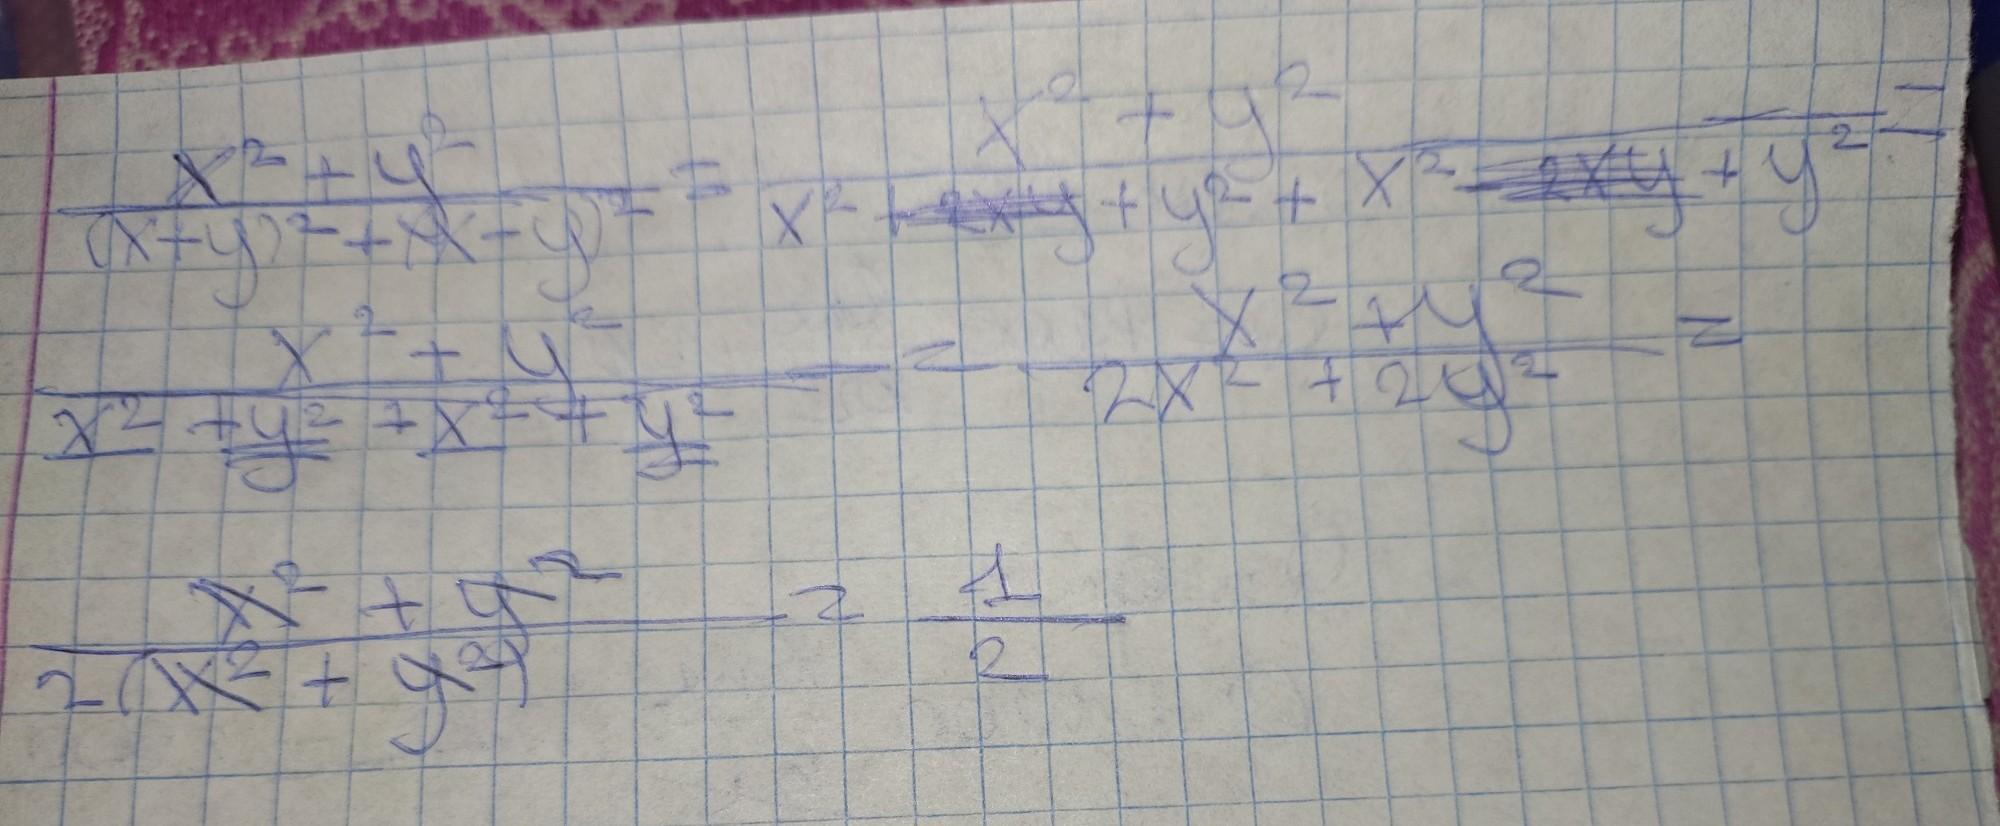 (x² + y²)/((x+y)² + (x-y)²) = (x² + y²)/(x² + 2xy + y² + x² - 2xy + y²) =
(x² + y²)/(x² + y² + x² + y²) = (x² + y²)/(2x² + 2y²) =
(x² + y²)/(2(x² + y²)) = 1/2